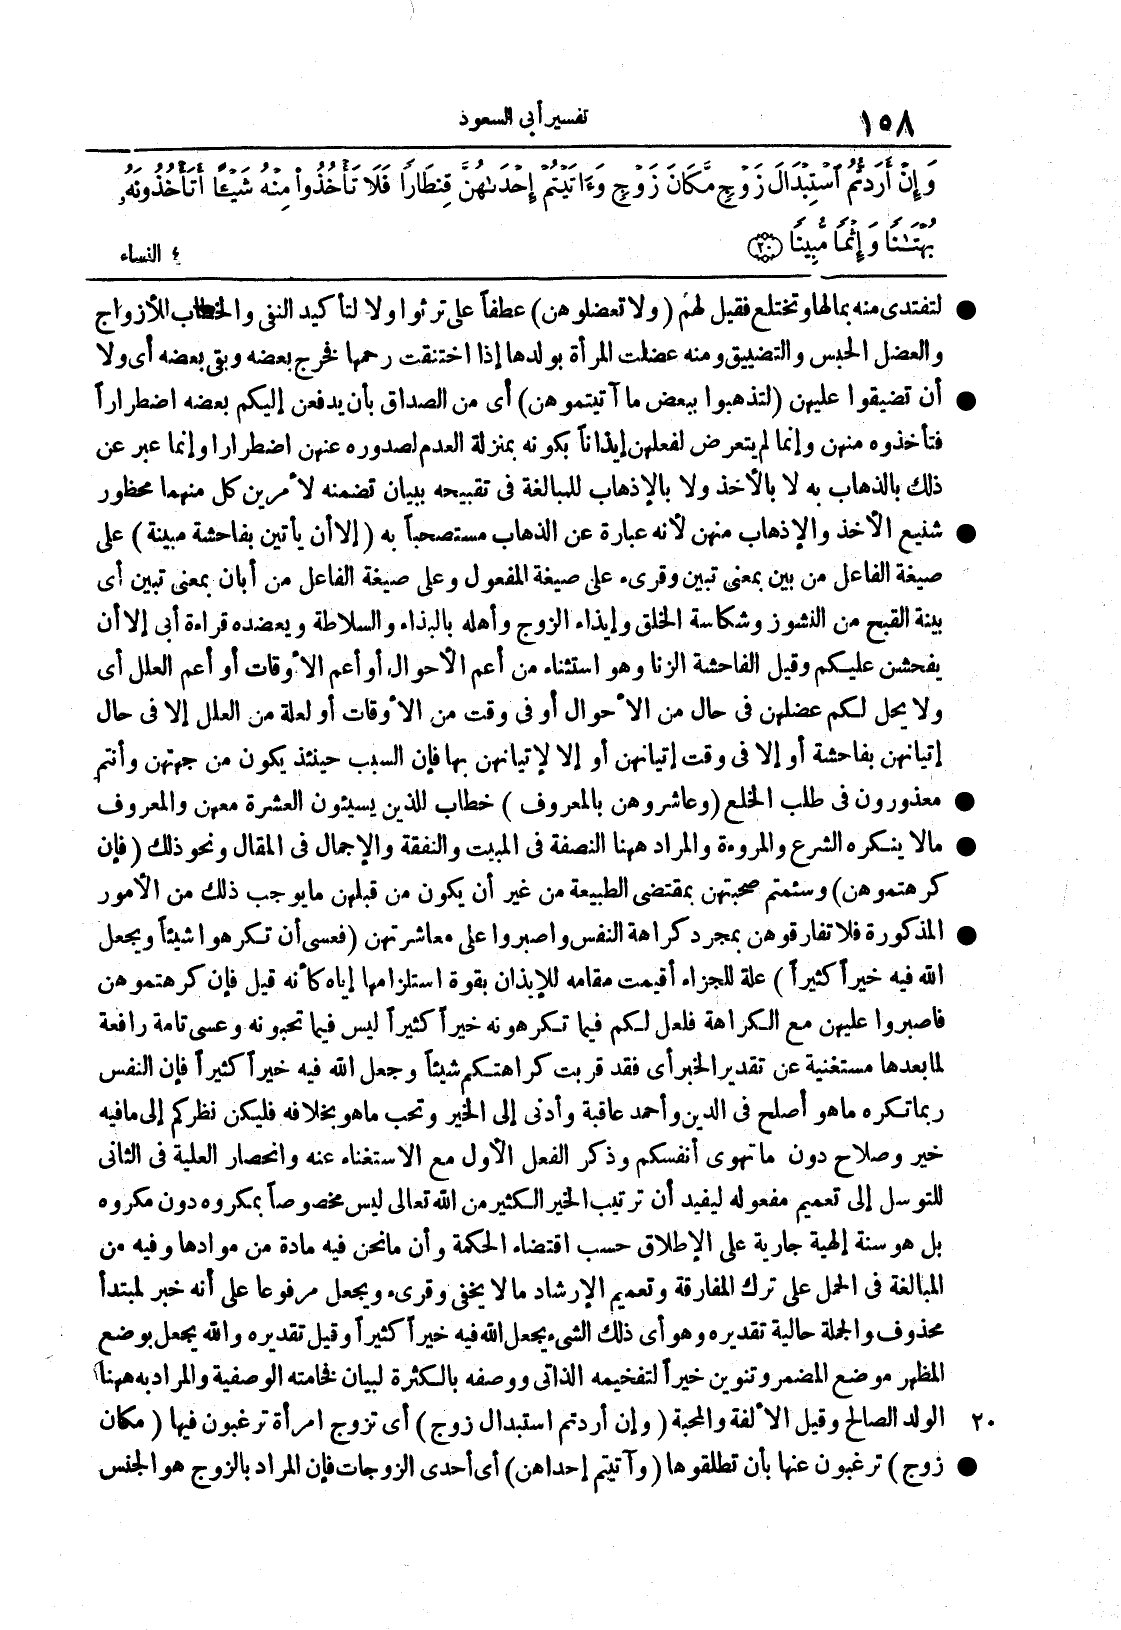 ١٥٨
تفسير أبى السعود
وَإِنْ أَرَدتُّمُ ٱسْتِبْدَالَ زَوْجٍ مَّكَانَ زَوْجٍ وَءَاتَيْتُمْ إِحْدَىٰهُنَّ قِنطَارًا فَلَا تَأْخُذُوا۟ مِنْهُ شَيْـًٔا أَتَأْخُذُونَهُۥ
بُهْتَـٰنًا وَإِثْمًا مُّبِينًا ﴿٢٠﴾
٤ النساء
● لتفتدى منه بمالها وتختلع فقيل لهم ( ولا تعضلوهن ) عطفاً على ترثوا ولا لتأكيد النفى والخطاب للأزواج
والعضل الحبس والتضييق ومنه عضلت المرأة بولدها إذا اختنقت رحمها فخرج بعضه وبقى بعضه أى ولا
● أن تضيقوا عليهن (لتذهبوا ببعض ما آتيتموهن) أى من الصداق بأن يدفعن إليكم بعضه اضطراراً
فتأخذوه منهن وإنما لم يتعرض لفعلهن إيذاناً بكونه بمنزلة العدم لصدوره عنهن اضطرارا وإنما عبر عن
ذلك بالذهاب به لا بالأخذ ولا بالإذهاب للمبالغة فى تقبيحه ببيان تضمنه لأمرين كل منهما محظور
● شنيع الأخذ والإذهاب منهن لأنه عبارة عن الذهاب مستصحباً به ( إلا أن يأتين بفاحشة مبينة ) على
صيغة الفاعل من بين بمعنى تبين وقرىء على صيغة المفعول وعلى صيغة الفاعل من أبان بمعنى تبين أى
بينة القبح من النشوز وشكاسة الخلق وإيذاء الزوج وأهله بالبذاء والسلاطة ويعضده قراءة أبى إلا أن
يفحشن عليكم وقيل الفاحشة الزنا وهو استثناء من أعم الأحوال أو أعم الأوقات أو أعم العلل أى
ولا يحل لكم عضلهن فى حال من الأحوال أو فى وقت من الأوقات أو لعلة من العلل إلا فى حال
إتيانهن بفاحشة أو إلا فى وقت إتيانهن أو إلا لإتيانهن بها فإن السبب حينئذ يكون من جهتهن وأنتم
● معذورون فى طلب الخلع (وعاشروهن بالمعروف ) خطاب للذين يسيئون العشرة معهن والمعروف
● مالا ينكره الشرع والمروءة والمراد ههنا النصفة فى المبيت والنفقة والإجمال فى المقال ونحو ذلك ( فإن
كرهتموهن) وسئمتم صحبتهن بمقتضى الطبيعة من غير أن يكون من قبلهن مايوجب ذلك من الأمور
● المذكورة فلا تفارقوهن بمجرد كراهة النفس واصبروا على معاشرتهن (فعسى أن تكرهوا شيئاً ويجعل
الله فيه خيراً كثيراً ) علة للجزاء أقيمت مقامه للإيذان بقوة استلزامها إياه كأنه قيل فإن كرهتموهن
فاصبروا عليهن مع الكراهة فلعل لكم فيما تكرهونه خيراً كثيراً ليس فيما تحبونه وعسى تامة رافعة
لما بعدها مستغنية عن تقدير الخبر أى فقد قربت كراهتكم شيئاً وجعل الله فيه خيراً كثيراً فإن النفس
ربما تكره ماهو أصلح فى الدين وأحمد عاقبة وأدنى إلى الخير وتحب ماهو بخلافه فليكن نظركم إلى مافيه
خير وصلاح دون ما تهوى أنفسكم وذكر الفعل الأول مع الاستغناء عنه وانحصار العلية فى الثانى
للتوسل إلى تعميم مفعوله ليفيد أن ترتيب الخير الكثير من الله تعالى ليس مخصوصاً بمكروه دون مكروه
بل هو سنة إلهية جارية على الإطلاق حسب اقتضاء الحكمة وأن مانحن فيه مادة من موادها وفيه من
المبالغة فى الحمل على ترك المفارقة وتعميم الإرشاد ما لا يخفى وقرىء ويجعل مرفوعا على أنه خبر لمبتدأ
محذوف والجملة حالية تقديره وهو أى ذلك الشىء يجعل الله فيه خيراً كثيراً وقيل تقديره والله يجعل بوضع
المظهر موضع المضمر وتنوين خيراً لتفخيمه الذاتى ووصفه بالكثرة لبيان فخامته الوصفية والمراد به ههنا
٢٠ الولد الصالح وقيل الألفة والمحبة ( وإن أردتم استبدال زوج ) أى تزوج امرأة ترغبون فيها ( مكان
● زوج ) ترغبون عنها بأن تطلقوها ( وآتيتم إحداهن) أى أحدى الزوجات فإن المراد بالزوج هو الجنس